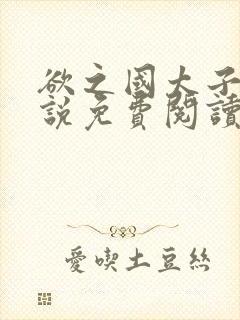 欲之國大子
說免費閱讀
愛喫土豆絲